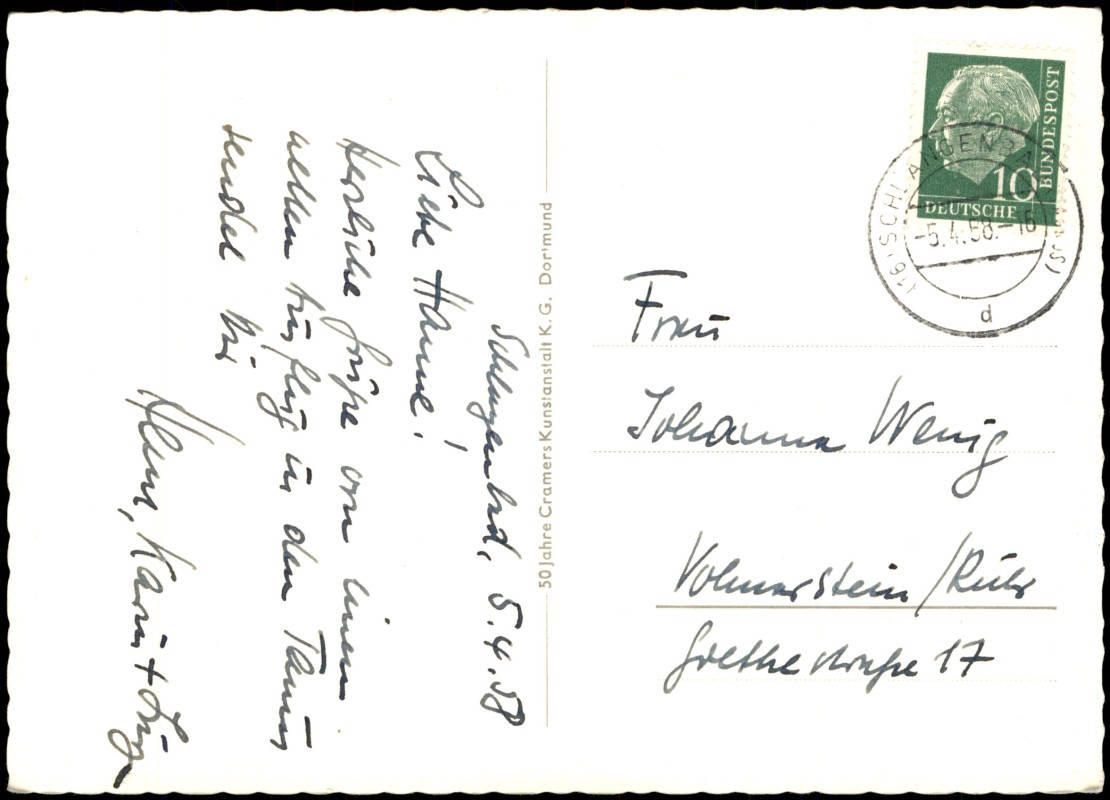 Schlangenbad, 5.4.58
Liebe Hanne!
Herzliche Grüße von einem
netten Ausflug in den Taunus
sendet Dir
Karin +
50 Jahre Cramers Kunstanstalt K.G. Dortmund
BUNDESPOST
10
DEUTSCHE
(16) SCHLANGENBAD
-5.4.58.-16
d
Frau
Johanna Wenig
Volmarstein/Ruhr
Goethestraße 17